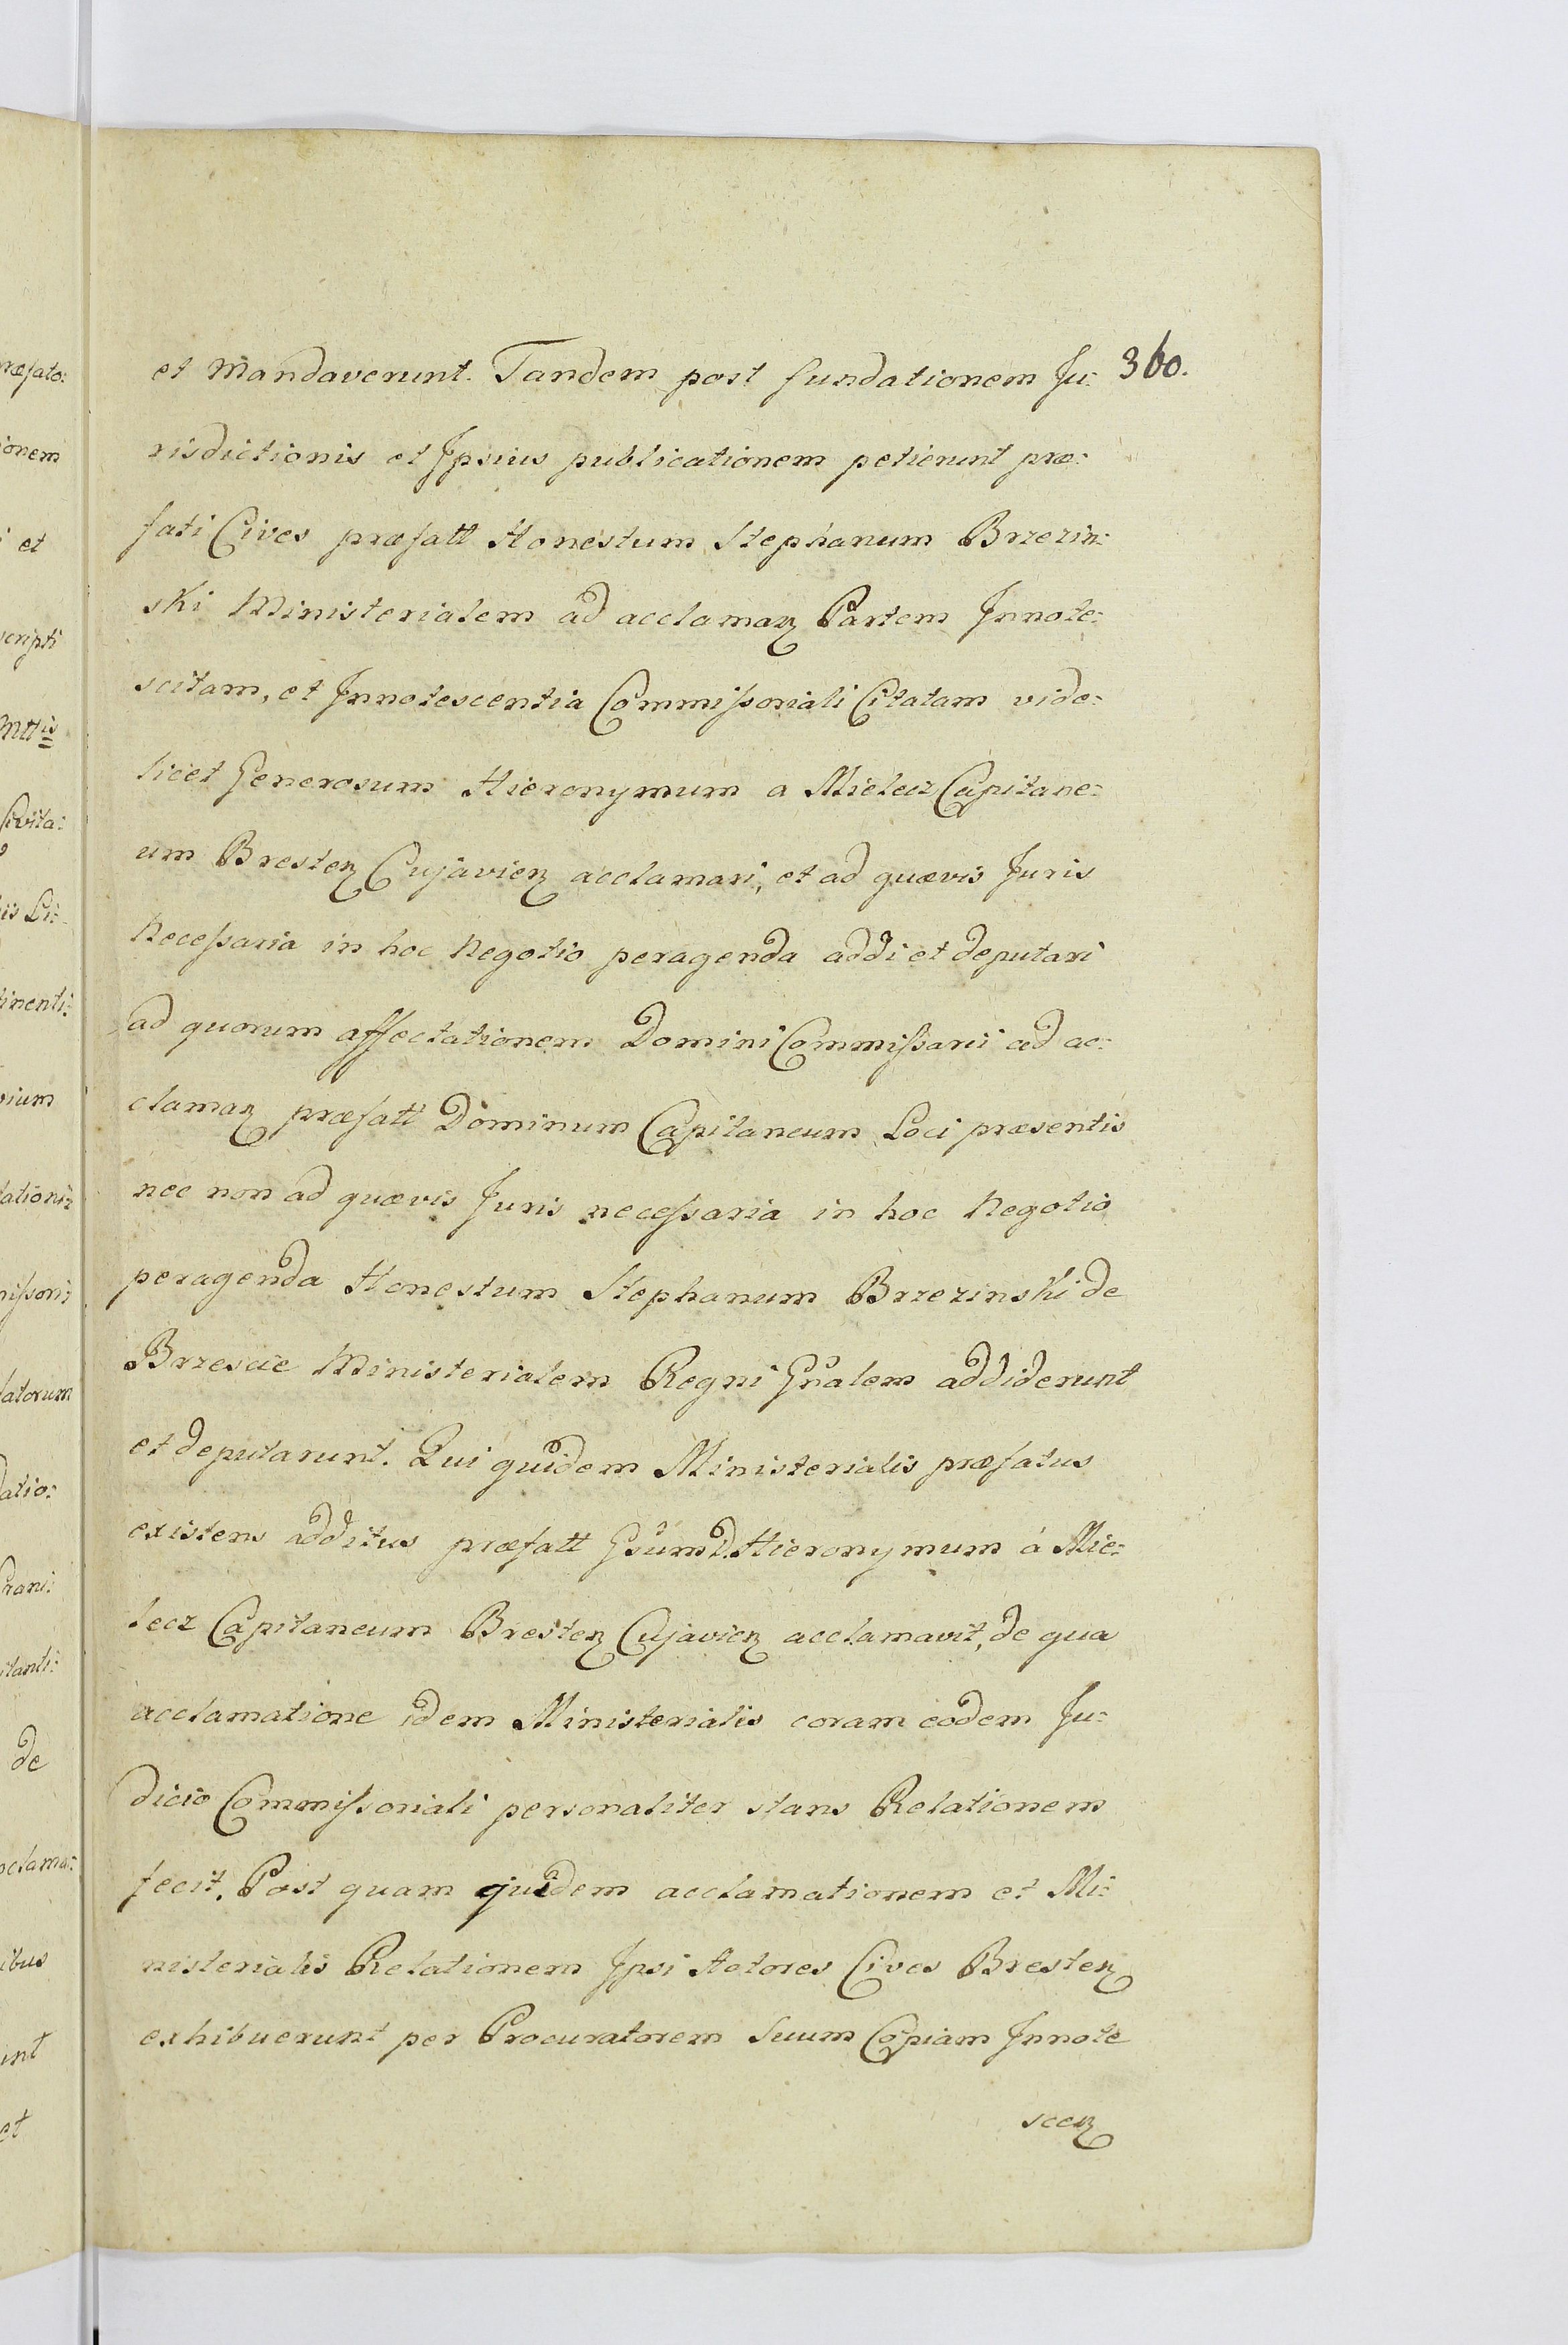 et Mandaverunt. Tandem post fundationem Ju: 360.
risdictionis et Ipsius publicationem petierunt præ:
fati Cives præfatt Honestum Stephanum Brzezin:
ski Ministerialem ad acclamaɳ Partem Innote:
scitam, et Innotescentia Commissoriali Citatam vide:
licet Generosum Hieronymum a Mielecz Capitane:
um Bresteɳ Cujavieɳ acclamari, et ad quævis Juris
Necessaria in hoc Negotio peragenda addi et deputari
ad quorum affectationem Domini Commissarii ad ac:
clamaɳ præfatt Dominum Capitaneum Loci præsentis
nec non ad quævis Juris necessaria in hoc Negotio
peragenda Honestum Stephanum Brzezinski de
Brzescie Ministerialem Regni Gnalem addiderunt
et deputarunt. Qui quidem Ministerialis præfatus
existens additus præfatt Gsum D. Hieronymum á Mie:
lecz Capitaneum Bresteɳ Cujavieɳ acclamavit, de qua
acclamatione idem Ministerialis coram eodem Ju:
dicio Commissoriali personaliter stans Relationem
fecit. Post quam quidem acclamationem et Mi:
nisterialis Relationem Ipsi Actores Cives Bresteɳ
exhibuerunt per Procuratorem Suum Copiam Innote
sceɳ